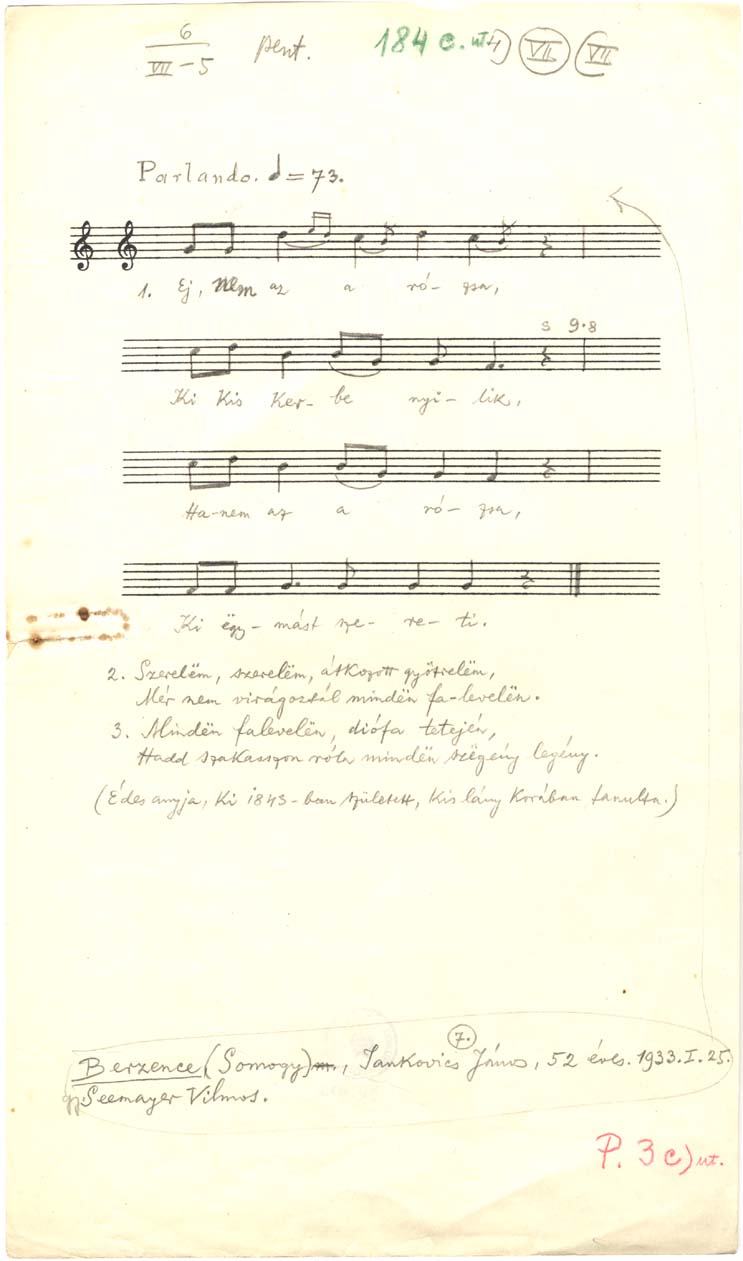 6
VII-5 pent. 184 c. ut4) VII VII
Parlando. ♩=73.
1. Ej, nem az a ró- zsa,
s 9.8
Ki kis ker- be nyi- lik,
Ha-nem az a ró- zsa,
Ki ëgy- mást sze- re- ti.
2. Szerelëm, szerelëm, átkozott gyötrelëm,
Mér nem virágoztál mindën fa-levelën.
3. Mindën falevelën, diófa tetején,
Hadd szakasszon róla mindën szëgény legény.
(Édesanyja, ki 1843-ban született, kis lány korában tanulta.)
7.
Berzence (Somogy) m., Jankovics János, 52 éves. 1933.I.25.
gy. Seemayer Vilmos.
P. 3c) ut.